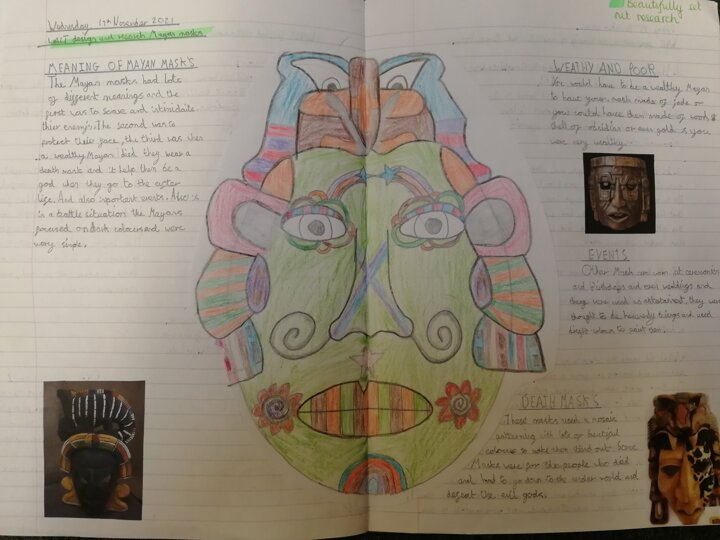 Wednesday 17th November 2021
LO: To design and research Mayan masks
MEANING OF MAYAN MASK'S
The Mayan masks had lots
of different meanings and the
first was to scare and intimidate
thier enemy's. The second was to
protect their face, the third was when
a wealthy Mayan died they wear a
death mask and it help them be a
god when they go to the after
life. And also important events. Also is
in a battle situation the Mayans
dark colours and were
very simple.
Beautifully set
out research
WEATHY AND POOR
You would have to be a wealthy Mayan
to have your mask made of jade or
you could have them made of wood,
shell or obsidian or even gold is you
were very wealthy.
EVENTS
Other Mask are worn at ceremonies
and Birthdays and even weddings and
these were used as entertainment, they were
thought to be heavenly beings and used
bright colours to paint them.
DEATH MASK'S
These masks used a mosaic
patterning with lots of beautiful
colours to make them stand out. Some
Masks were for the people who died
and had to go down to the under world and
defeat the evil gods.